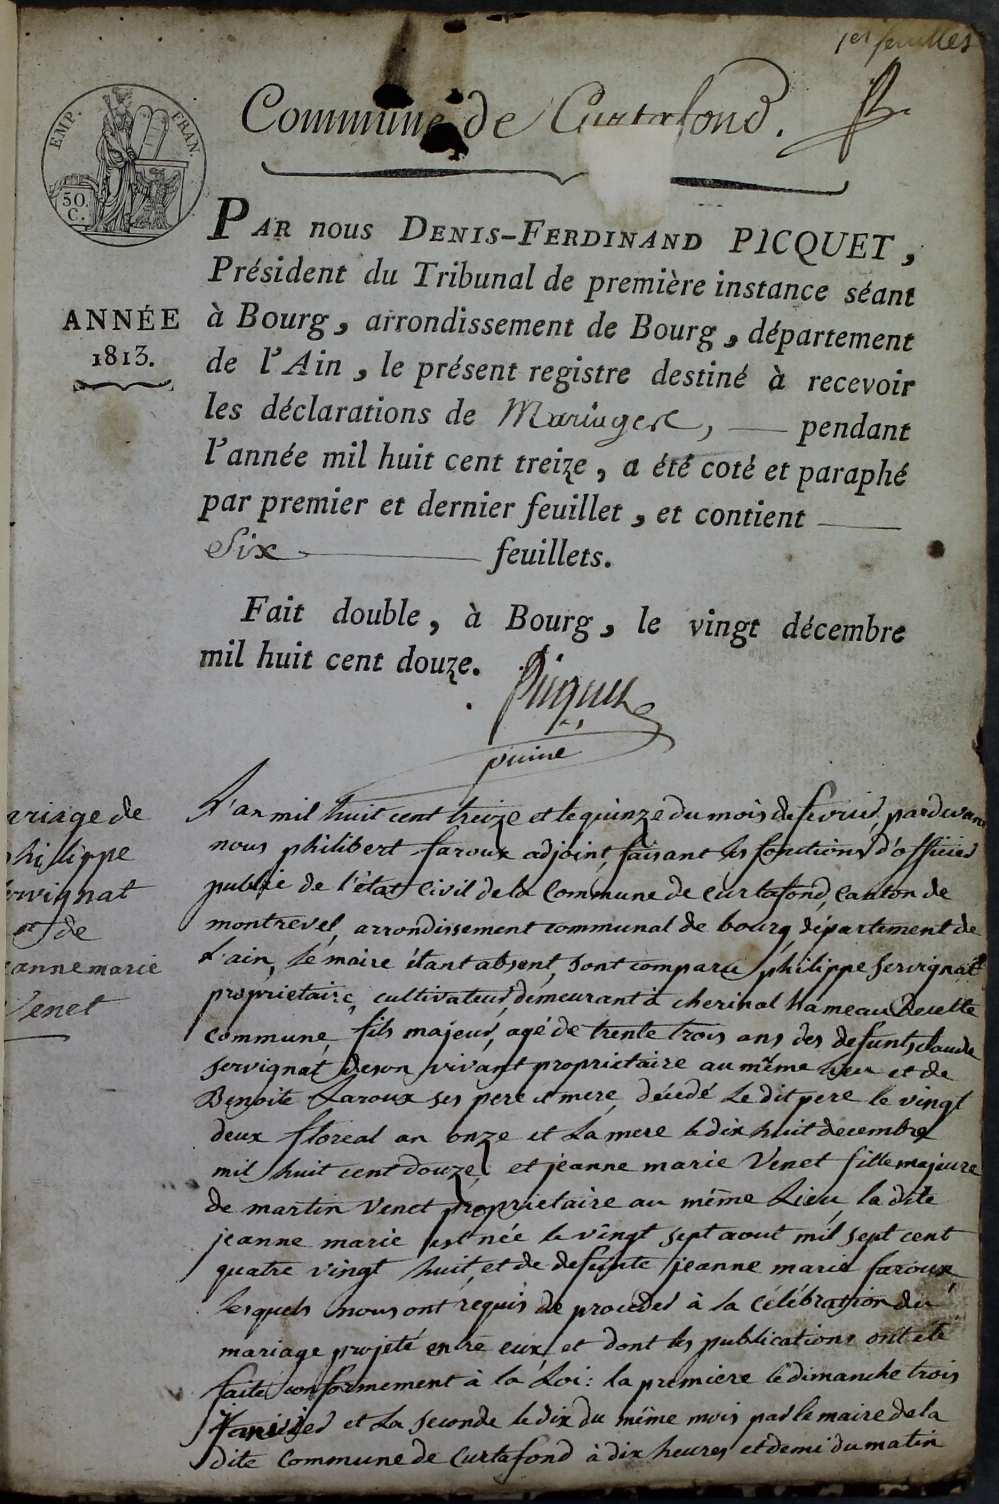 1er feuillet
Commune de Curtafond.
EMP. FRAN.
50.
C.
PAR nous DENIS-FERDINAND PICQUET,
Président du Tribunal de première instance séant
à Bourg, arrondissement de Bourg, département
de l'Ain, le présent registre destiné à recevoir
les déclarations de Mariages, — pendant
l'année mil huit cent treize, a été coté et paraphé
par premier et dernier feuillet, et contient —
Six — feuillets.
ANNÉE
1813.
Fait double, à Bourg, le vingt décembre
mil huit cent douze.
Picquet
ariage de
philippe
ervignat
et de
eanne marie
Venet
L'an mil huit cent treize et le quinze du mois de fevrier, pardevant
nous philibert faroux adjoint, faisant les fonctions d'officier
public de l'état Civil de la Commune de Curtafond, Canton de
montrevel, arrondissement communal de bourg, département de
L'ain, le maire étant absent, sont comparu philippe servignat
proprietaire, cultivateur, demeurant à cherinal hameau de cette
commune, fils majeur, agé de trente trois ans des defunts claude
servignat de son vivant proprietaire au même lieu et de
Benoite Laroux ses pere et mere, décédé le dit pere le vingt
deux floreal an onze et la mere le dix huit decembre
mil huit cent douze, et jeanne marie Venet fille majeure
de martin Venet proprietaire au même Lieu, la dite
jeanne marie est née le vingt sept aout mil sept cent
quatre vingt huit, et de defunte jeanne marie faroux
lesquels nous ont requis de proceder à la célébration du
mariage projeté entre eux, et dont les publications ont été
faite conformement à la Loi: la premiere le dimanche trois
janvier et la seconde le dix du même mois par le maire de la
dite Commune de Curtafond à dix heures et demi du matin